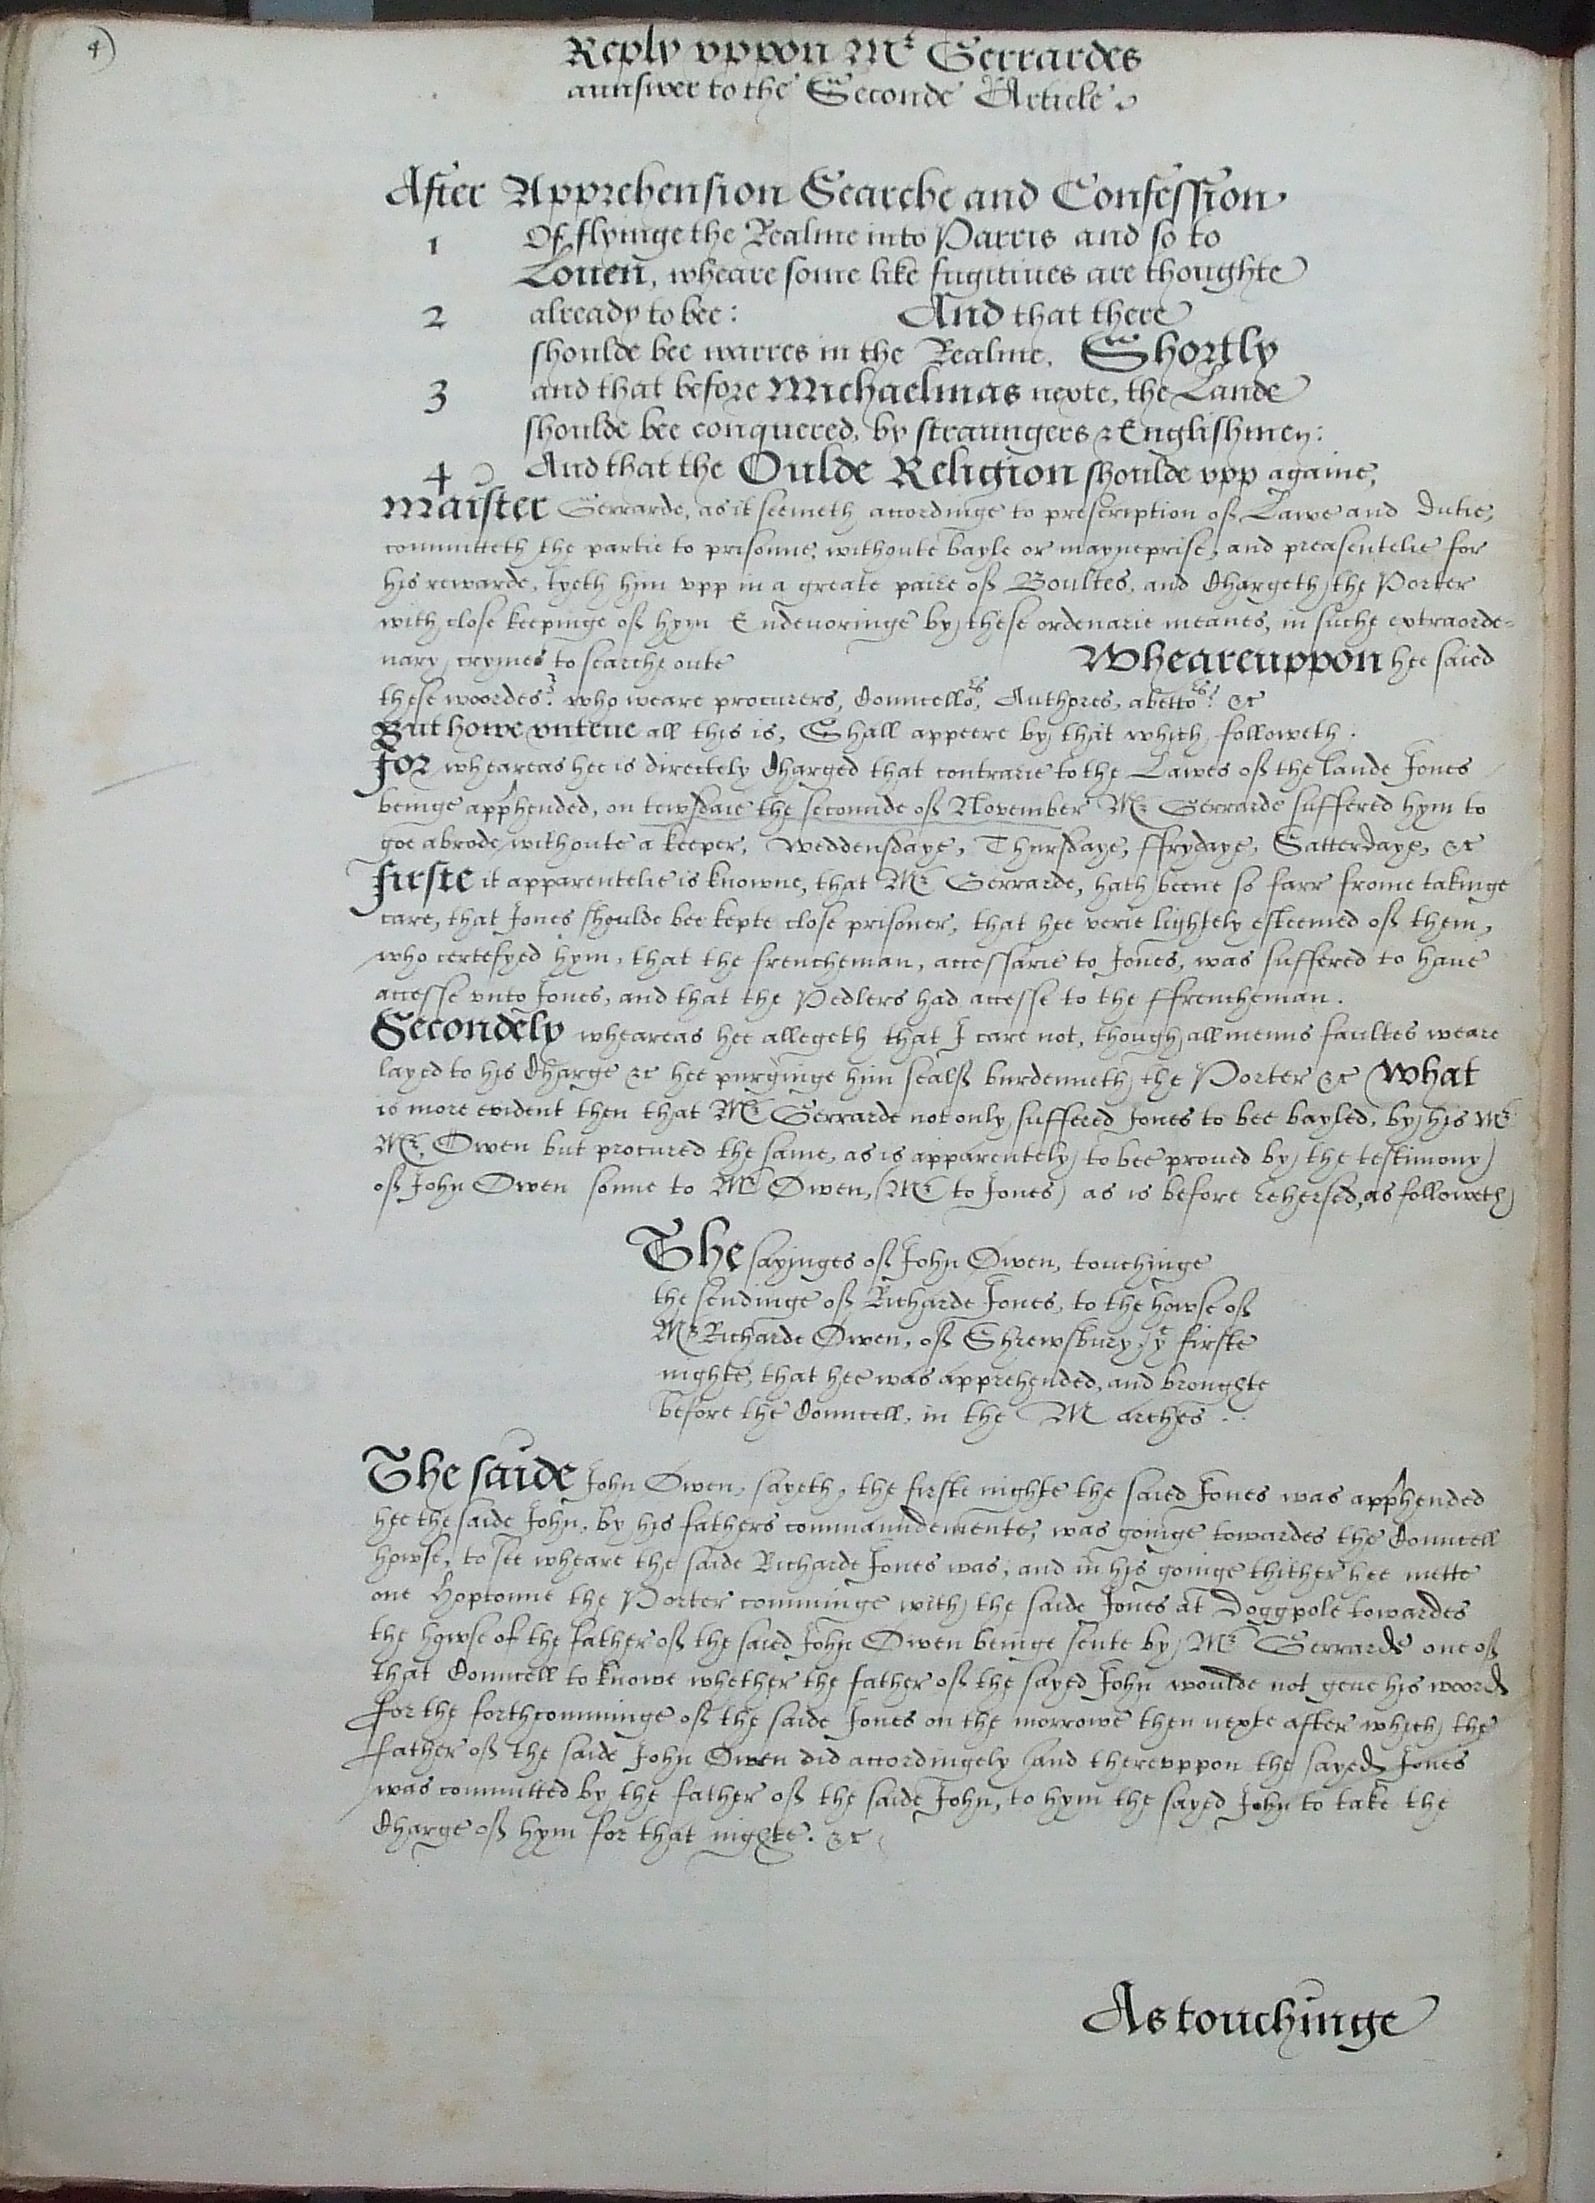 4)
Reply vppon Mr Gerrardes
aunswer to the Seconde Article.
After Apprehension Searche and Confession
1 Of flyinge the Realme into Parris and so to
Louen, wheare some like fugitiues are thoughte
2 already to bee: And that there
shoulde bee warres in the Realme. Shortly
3 and that before Michaelmas nexte, the Lande
shoulde bee conquered, by straungers & Englishmen:
4 And that the Oulde Religion shoulde vpp againe,
Maister Gerrarde, as it seemeth accordinge to prescription of Lawe and dutie,
committeth the partie to prisonne, withoute bayle or mayneprise, and preasentelie for
his rewarde, tyeth him vpp in a greate paire of Boultes, and Chargeth the Porter
with close keepinge of hym Endeuoringe by these ordenarie meanes, in suche extraorde=
nary crymes to searche oute Wheareuppon hee saied
these woordes? who weare procurers, Councellors, Authores, abettors? &c
But howe vntrue all this is, Shall appeere by that which followeth.
For wheareas hee is directely Charged that contrarie to the Lawes of the lande Jones
beinge apphended, on tewsdaie the secounde of November Mr Gerrarde suffered hym to
goe abrode withoute a keeper, Weddensdaye, Thursdaye, ffrydaye, Satterdaye, &c
Firste it apparentelie is knowne, that Mr Gerrarde, hath beene so farr frome takinge
care, that Jones shoulde bee kepte close prisoner, that hee verie lightely esteemed of them,
who certefyed hym, that the frencheman, accessarie to Jones, was suffered to haue
accesse vnto Jones, and that the Pedlers had accesse to the ffrencheman.
Secondely wheareas hee allegeth that I care not, though all menns faultes weare
layed to his Charge &c hee purginge him sealf burdenneth the Porter &c What
is more evident then that Mr Gerrarde not only suffered Jones to bee bayled, by his Mr
Mr. Owen but procured the same, as is apparentely to bee proued by the testimony
of John Owen sonne to Mr Owen, (Mr to Jones) as is before rehersed, as followeth
The sayinges of John Owen, touchinge
the sendinge of Richarde Jones, to the howse of
Mr Richarde Owen, of Shrewsbury, ye firste
nighte, that hee was apprehended, and broughte
before the Councell, in the Marches.
The saide John Owen, sayeth, the firste nighte the saied Jones was apphended
hee the saide John, by his fathers commaundemente, was goinge towardes the Councell
howse, to see wheare the saide Richarde Jones was, and in his goinge thither hee mette
one Hoptonne the Porter comminge with the saide Jones at Doggpole towardes
the howse of the father of the saied John Owen beinge sente by Mr Gerrarde one of
that Councell to knowe whether the father of the sayed John woulde not geue his woord
for the forthcomminge of the saide Jones on the morrowe then nexte after which the
father of the saide John Owen did accordingely and therevppon the sayed Jones
was committed by the father of the saide John, to hym the sayed John to take the
Charge of hym for that nighte. &c
As touchinge